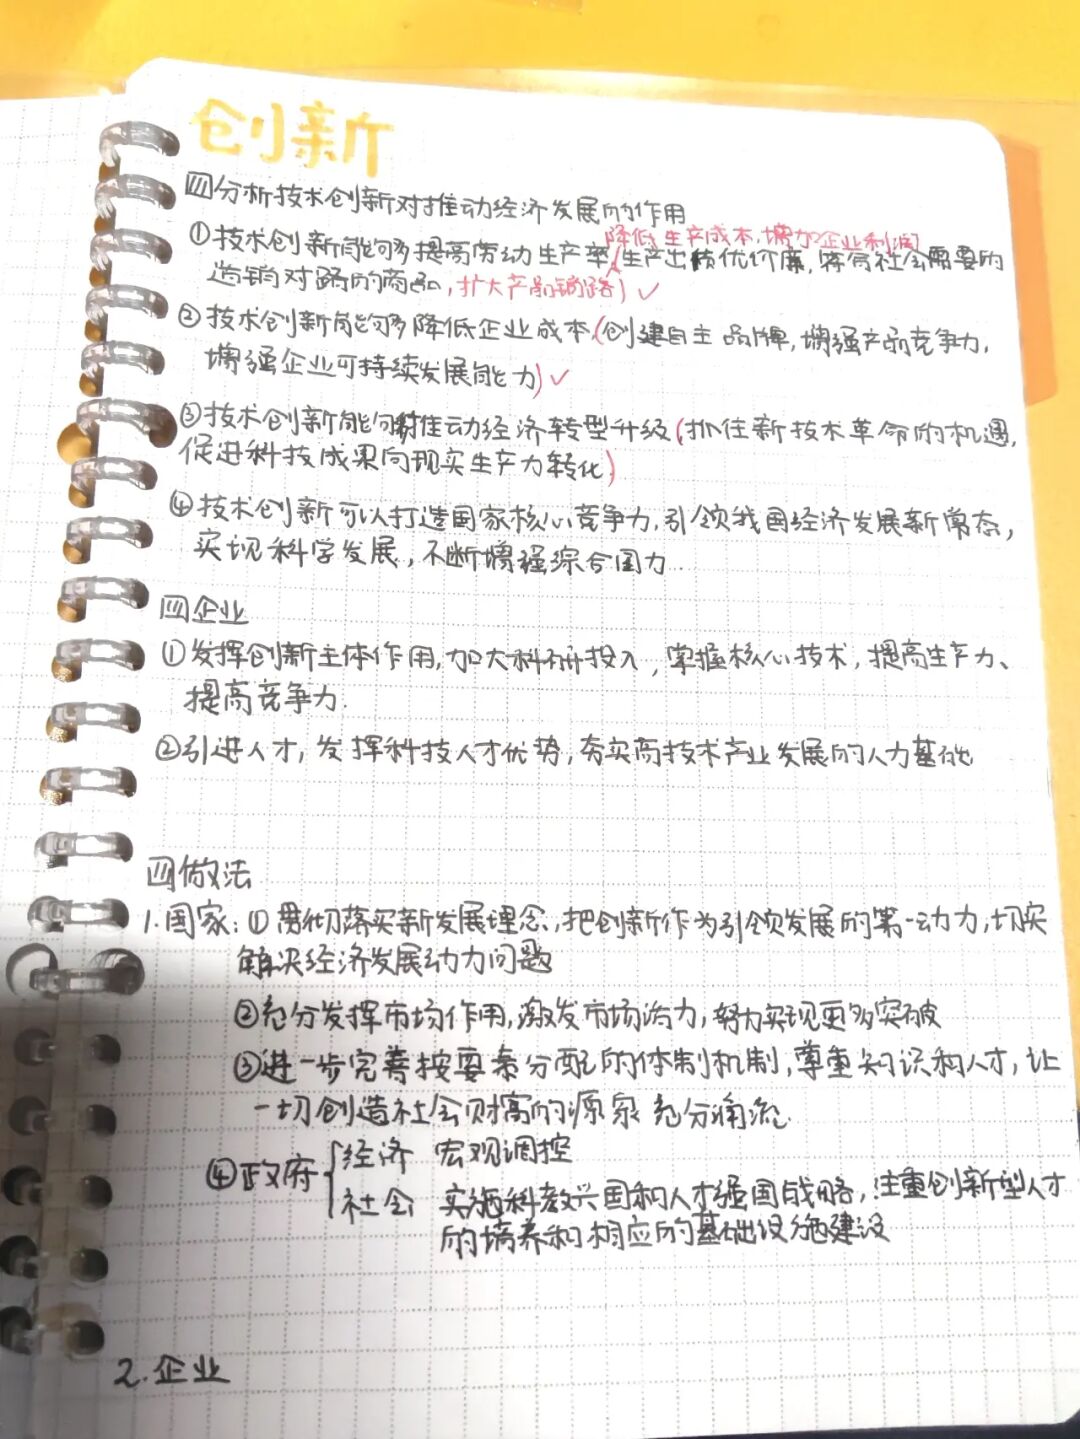 创新
四分析技术创新对推动经济发展的作用
降低生产成本,增加企业利润
①技术创新能够多提高劳动生产率(生产出质优价廉,符合社会需要的
适销对路的商品,扩大产品销路)✓
②技术创新能够多降低企业成本,(创建自主品牌,增强产品竞争力,
增强企业可持续发展能力)✓
③技术创新能够推动经济转型升级(抓住新技术革命的机遇,
促进科技成果向现实生产力转化)
④技术创新可以打造国家核心竞争力,引领我国经济发展新常态,
实现科学发展,不断增强综合国力.
四企业
①发挥创新主体作用,加大科研投入,掌握核心技术,提高生产力、
提高竞争力.
②引进人才,发挥科技人才优势,夯实高技术产业发展的人力基础
四做法
1.国家:①贯彻落实新发展理念,把创新作为引领发展的第一动力,切实
解决经济发展动力问题
②充分发挥市场作用,激发市场活力,努力实现更多突破
③进一步完善按要素分配的体制机制,尊重知识和人才,让
一切创造社会财富的源泉充分涌流.
④政府{经济 宏观调控
社会 实施科教兴国和人才强国战略,注重创新型人才
的培养和相应的基础设施建设
2.企业